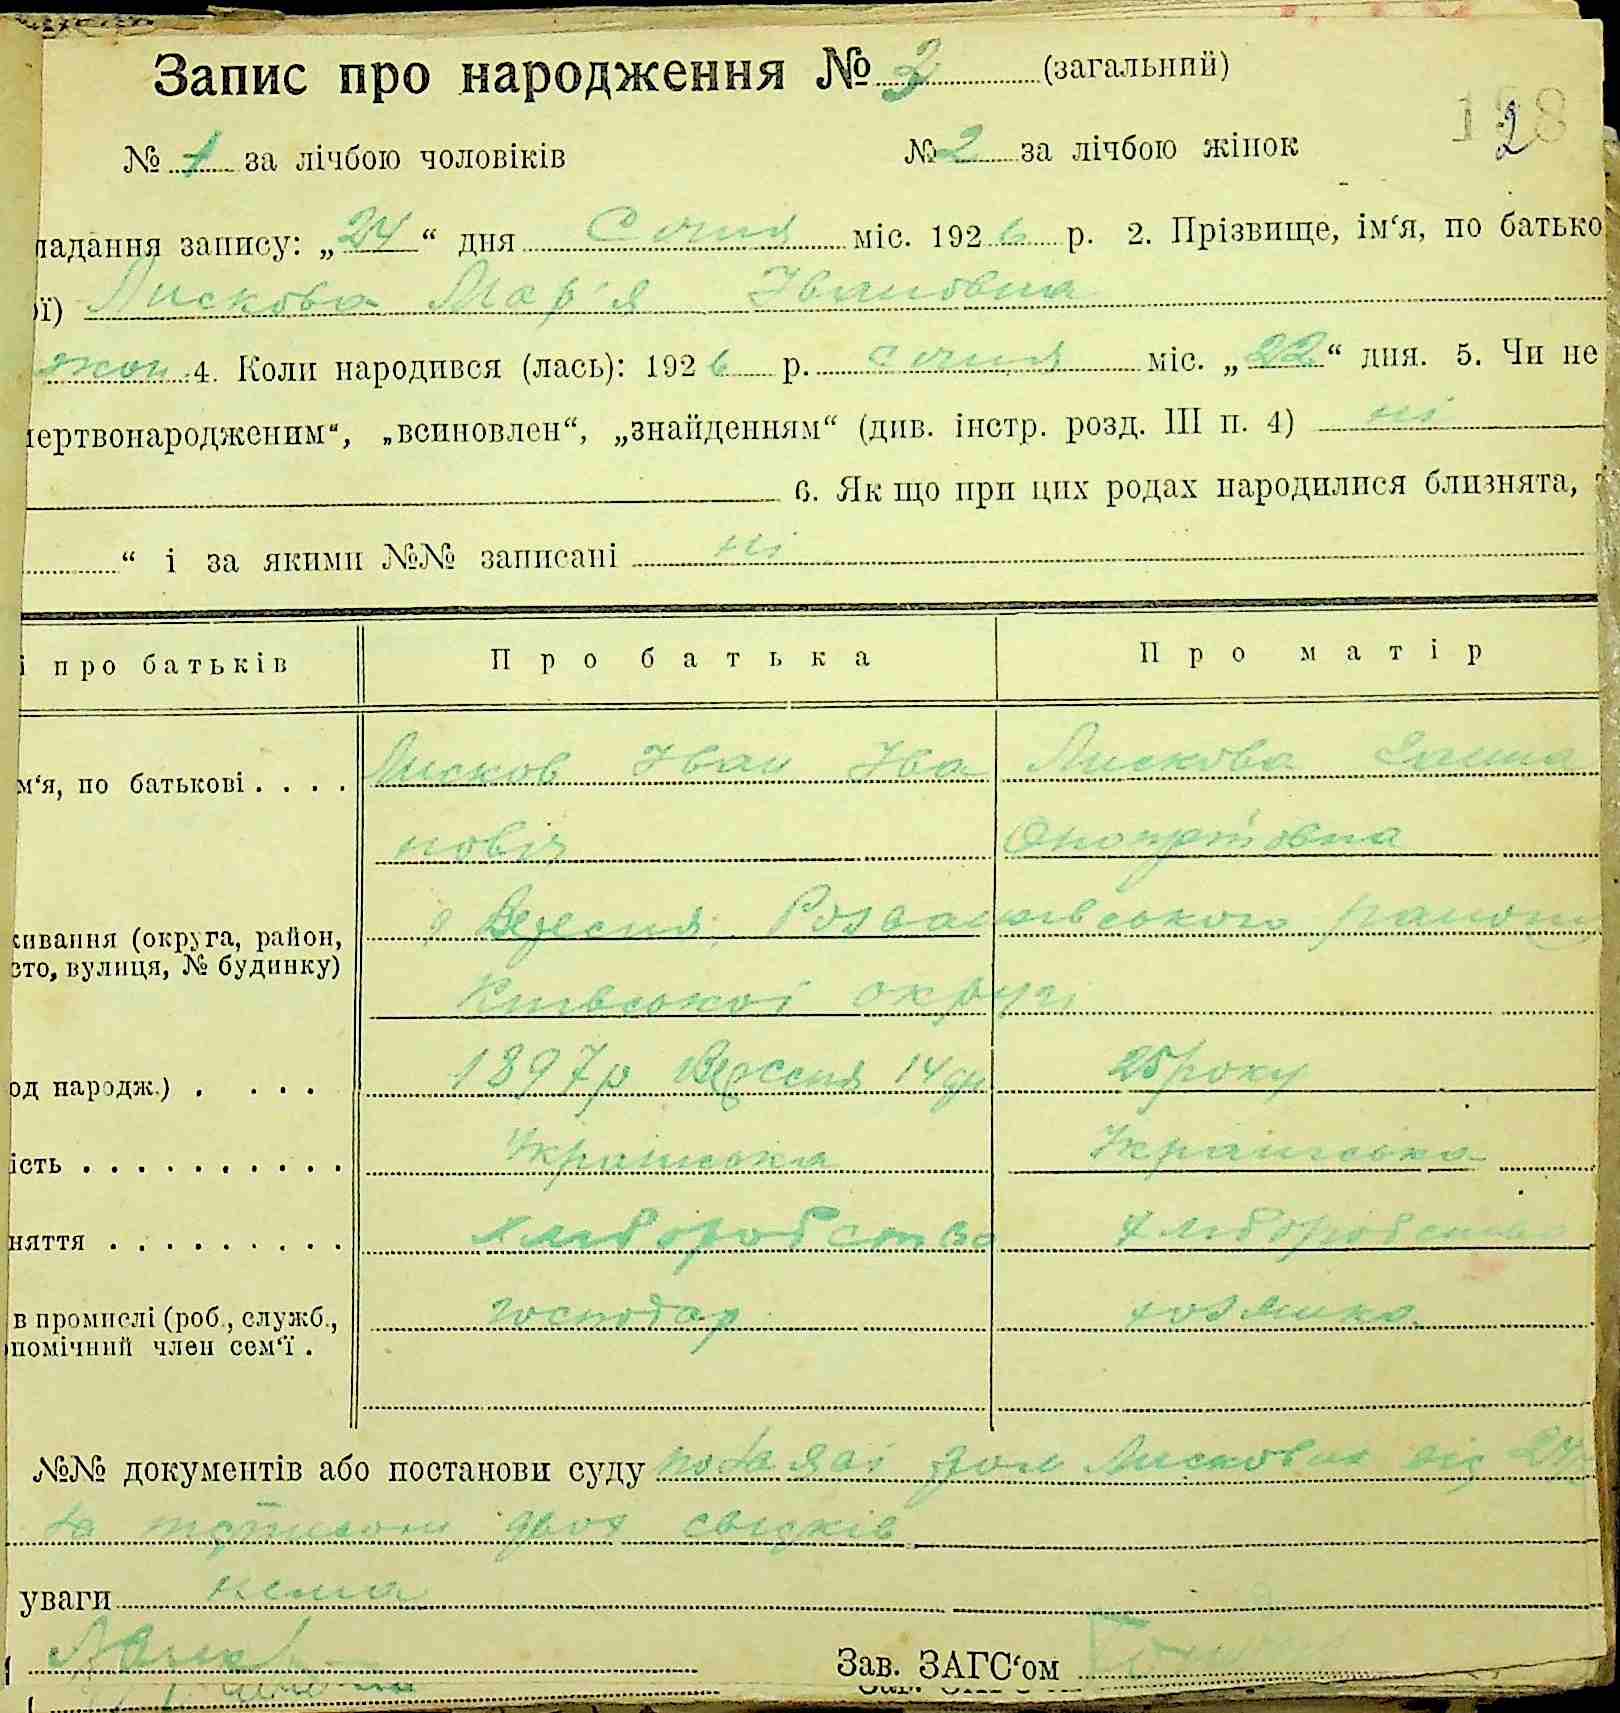 Запис про народження № 3 (загальний)
128
2
№ 1 за лічбою чоловіків № 2 за лічбою жінок
ладання запису: „24“ дня Січня міс. 1926 р. 2. Прізвище, ім‘я, по батько
ої) Лискова Мар‘я Івановна
жон 4. Коли народився (лась): 1926 р. січня міс. „22“ дня. 5. Чи не
мертвонародженим“, „всиновлен“, „знайденням“ (див. інстр. розд. III п. 4) ні
6. Як що при цих родах народилися близнята,
“ і за якими №№ записані ні
і про батьків Про батька Про матір
м‘я, по батькові . . . . Лисков Іван Іва Лискова Ганна
новіч Онопріовна
живання (округа, район, Вересня, Розважівського району
сто, вулиця, № будинку)
Київської округи
од народж.) . . . . 1897р Вересня 14 дн 25 року
ість . . . . . . . . . . Українська Українська
няття . . . . . . . . . Хліборобство Хліборобство
в промислі (роб., служб., господар хозяйка
помічний член сем‘ї .
№№ документів або постанови суду гром Лискова від 24
за підписом двох свідків
уваги нема
Зав. ЗАГС‘ом